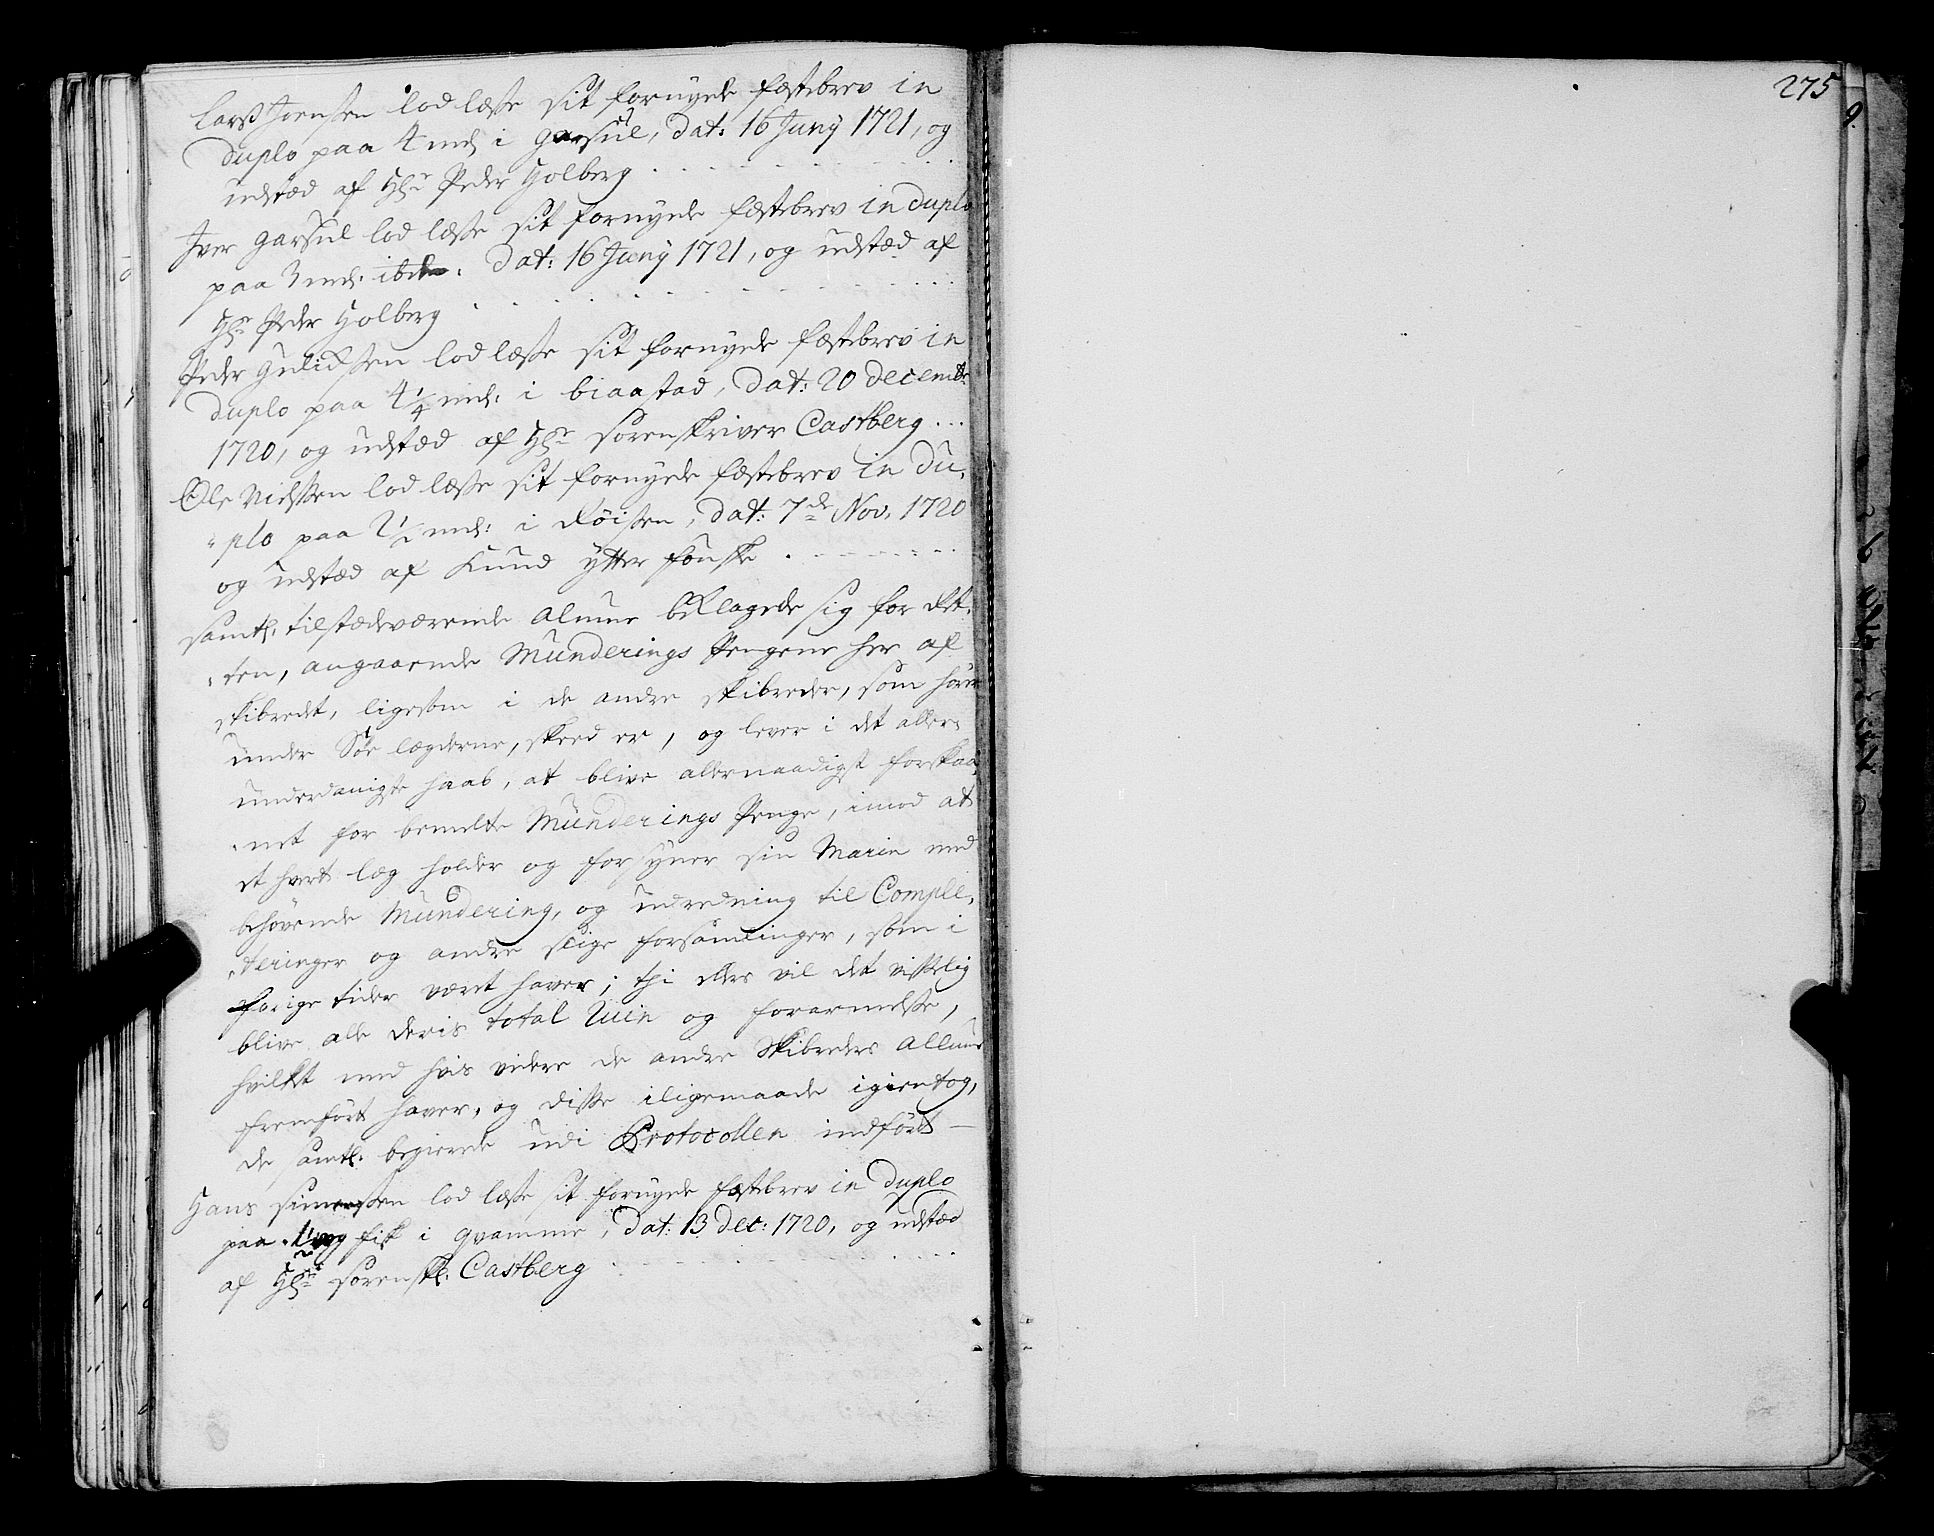 Lars Joenssen lod læsse sit fornyede fæstebrev in
duplo paa 4 mel i Garsül, dat: 16 Juny 1721, og
udstæd af Hr Peder Holberg
Iver Garsül lod læsse sit fornyede fæstebrev in duplo
paa 3 mel: ibdm. dat: 16 Juny 1721, og udstæd af
Hr Peder Holberg
Peder Gulichssen lod læsse sit fornyede fæstebrev in
duplo paa 4 1/4 mel: i biaastad, dat: 20 decembr
1720, og udstæd af Hr sorenskriver Castberg ...
Ole Nielssen lod læsse sit fornyede fæstebrev in du-
plo paa 2 1/2 mel: i Røissen, dat: 7de Nov. 1720
og udstæd af Knud ytter fønske
samtl. tilstædeværende almue beklagede sig for Ret-
ten, angaaende Munderings Pengene her af
skibredet, ligesom i de andre skibreder, som hører
under Søe lægderne, skeed er, og lever i det aller-
underdanigste haab, at blive allernaadigst forskaa-
net for bemelte Munderings Penge, imod at
et hvert læg holder og forsyner sin Marin med
behøvende Mundering, og udredning til Comple-
teringer og andre slige forsamlinger, som i
forige tider været haver; thi ellers vil det visselig
blive alle deris total Ruin og forarmelsse,
hvilket med hvis videre de andre Skibreders Allmue
fremført haver, og disse iligemaade igientog,
de samtl. begierede udi Protocollen indført
Hans simenssen lod læsse sit fornyede fæstebrev in duplo
paa fisk i Qvamme, dat: 13 dec: 1720, og udstæd
af Hr sorenskr. Castberg
275
9.